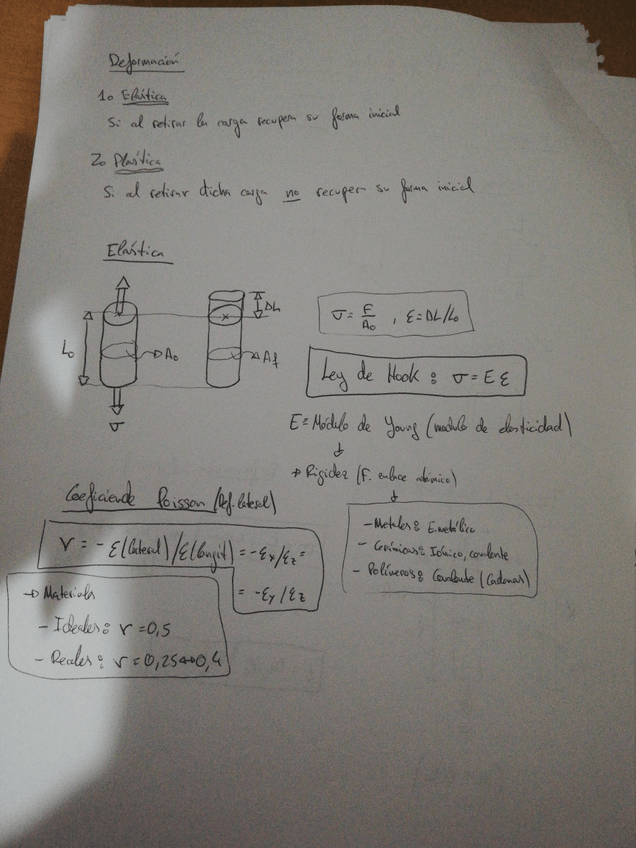 Deformación
1o Elástica
Si al retirar la carga recupera su forma inicial
2o Plástica
Si al retirar dicha carga no recupera su forma inicial
Elástica
L₀
A₀
σ
ΔL
Af
σ = F/A₀ , ε = ΔL/L₀
Ley de Hook : σ = E ε
E ≡ Módulo de Young (modulo de elasticidad)
↓
→ Rigidez (F. enlace atómico)
↓
- Metales : E. metálico
- Cerámicas : Iónico, covalente
- Polímeros : Covalente (Cadenas)
Coeficiende Poisson (Def. lateral)
ν = - ε(lateral) / ε(longit) = -εx/εz =
= -εy/εz
→ Materials
- Ideales : ν = 0,5
- Reales : ν = 0,25 ↔ 0,4